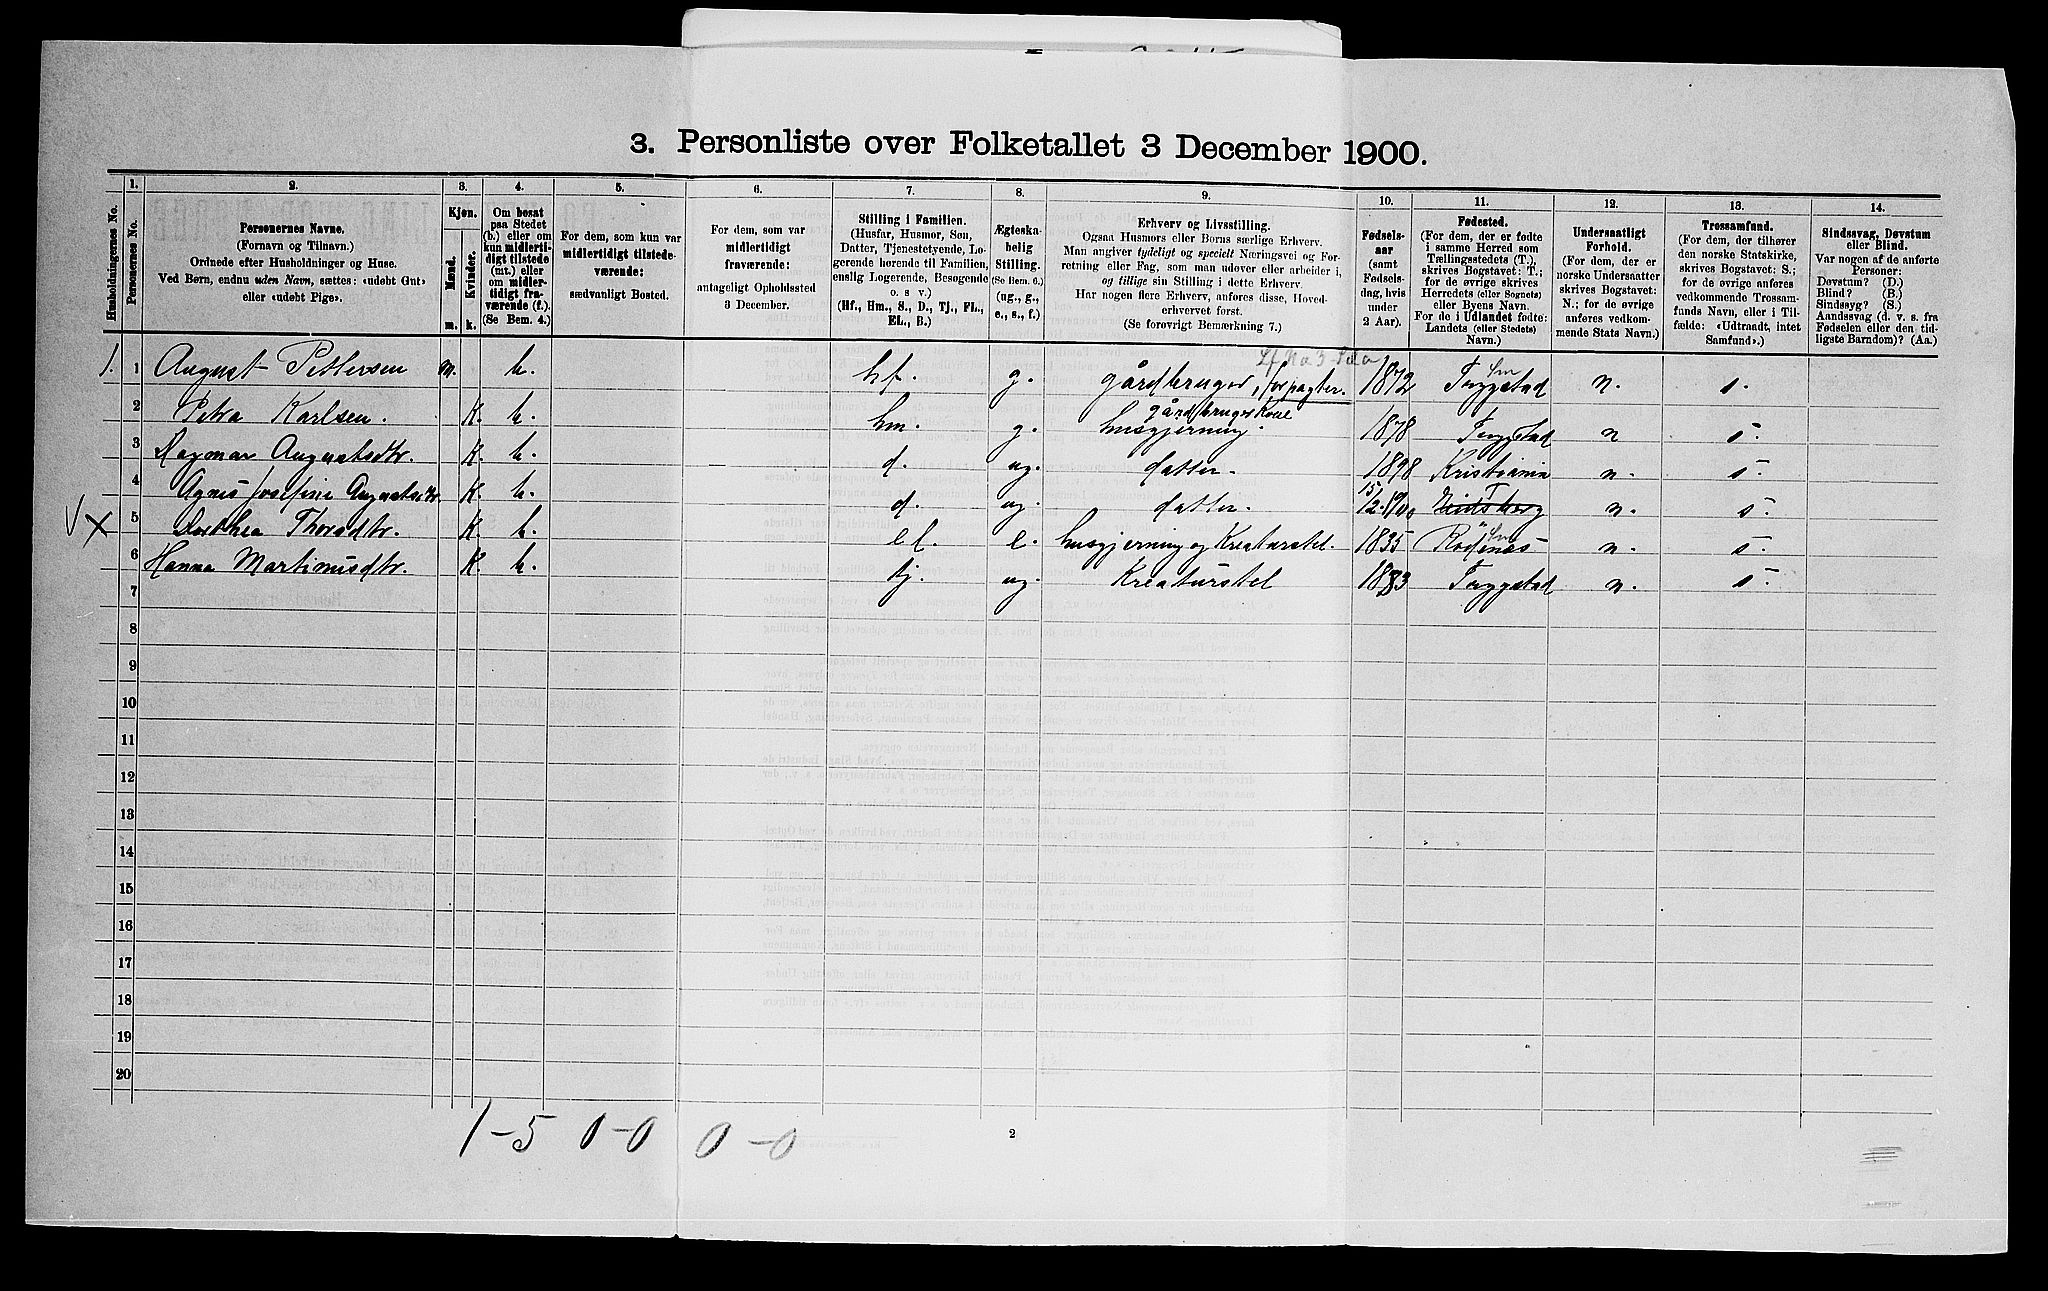 3. Personliste over Folketallet 3 December 1900.
Husholdningernes No.
1.
Personernes No.
2.
Personernes Navne.
(Fornavn og Tilnavn.)
Ordnede efter Husholdninger og Huse.
Ved Børn, endnu uden Navn, sættes: «udøbt Gut»
eller «udøbt Pige».
3.
Kjøn.
Mænd.
Kvinder.
m.
k.
4.
Om bosat
paa Stedet
(b.) eller om
kun midlerti-
digt tilstede
(mt.) eller
om midler-
tidigt fra-
værende (f.).
(Se Bem. 4.)
5.
For dem, som kun var
midlertidigt tilstede-
værende:
sædvanligt Bosted.
6.
For dem, som var
midlertidigt
fraværende:
antageligt Opholdssted
3 December.
7.
Stilling i Familien.
(Husfar, Husmor, Søn,
Datter, Tjenestetyende, Lo-
gerende hørende til Familien,
enslig Logerende, Besøgende
o. s v.)
(Hf., Hm., S., D., Tj., FL.,
EL., B.)
8.
Ægteska-
belig
Stilling.
(Se Bem. 6.)
(ug., g.,
e., s., f.)
9.
Erhverv og Livsstilling.
Ogsaa Husmors eller Børns særlige Erhverv.
Man angiver tydeligt og specielt Næringsvei og For-
retning eller Fag, som man udøver eller arbeider i,
og tillige sin Stilling i dette Erhverv.
Har nogen flere Erhverv, anføres disse, Hoved-
erhvervet først.
(Se forøvrigt Bemærkning 7.)
10.
Fødsels-
aar
(samt
Fødsels-
dag, hvis
under
2 Aar).
11.
Fødested.
(For dem, der er fødte
i samme Herred som
Tællingsstedets (T.),
skrives Bogstavet: T.;
for de øvrige skrives
Herredets (eller Sognets)
eller Byens Navn.
For de i Udlandet fødte:
Landets (eller Stedets)
Navn.)
12.
Undersaatligt
Forhold.
(For dem, der er
norske Undersaatter
skrives Bogstavet:
N.; for de øvrige
anføres vedkom-
mende Stats Navn.)
13.
Trossamfund.
(For dem, der tilhører
den norske Statskirke,
skrives Bogstavet: S.;
for de øvrige anføres
vedkommende Trossam-
funds Navn, eller i Til-
fælde: «Udtraadt, intet
Samfund».)
14.
Sindssvag, Døvstum
eller Blind.
Var nogen af de anførte
Personer:
Døvstum? (D.)
Blind? (B.)
Sindssyg? (S.)
Aandssvag (d. v. s. fra
Fødselen eller den tid-
ligste Barndom)? (Aa.)
1. 1 August Pettersen m. b. hf. g. gårdbruger, forpagter. 1872 Tryggstad n. s.
2 Petra Karlsen. K. b. hm. g. gårdbrugerkone husgjerning. 1878 Trygstad n s.
3 Dagmar Augustsdtr. K. b. d. ug. datter. 1898 Kristiania n. s.
4 Agnes Josefine Augustsdtr. K. b. d. ug. datter. 15/2. 1900 T n. s.
5 Dorthea Thorsdtr. K. b. el. e. husgjerning og Kreaturstel. 1835 Rødenæs n. s.
6 Hanna Martinusdtr. K. b. tj. ug. Kreaturstel 1883 Tryggstad n. s.
7
8
9
10
11
12
13
14
15
16
17
18
19
20
1-5 0-0 0-0
2